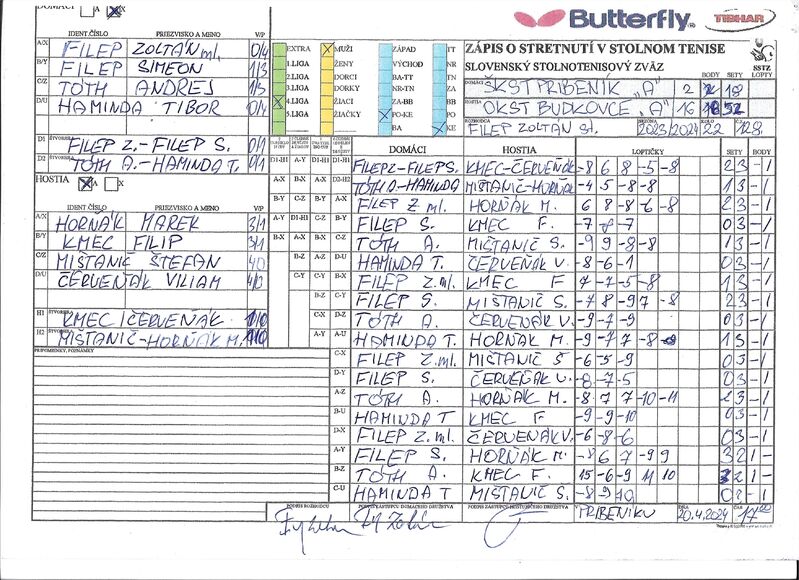 DOMÁCI A X
Butterfly TIBHAR
IDENT.ČÍSLO PRIEZVISKO A MENO V/P
A/X FILEP ZOLTÁN ml. 0/4
B/Y FILEP SIMEON 1/3
C/Z TÓTH ANDREJ 1/3
D/U HAMINDA TIBOR 0/4
D1 ŠTVORHRA FILEP Z.-FILEP S. 0/1
D2 ŠTVORHRA TÓTH A.-HAMINDA T. 0/1
EXTRA MUŽI ZÁPAD TT
1.LIGA ŽENY VÝCHOD NR
2.LIGA DORCI BA-TT TN
3.LIGA DORKY NR-TN ZA
4.LIGA ŽIACI ZA-BB BB
5.LIGA ŽIAČKY PO-KE PO
BA KE
ZÁPIS O STRETNUTÍ V STOLNOM TENISE
SLOVENSKÝ STOLNOTENISOVÝ ZVÄZ
SSTZ
BODY SETY LOPTY
DOMÁCI ŠKST PRIBENÍK "A" 2 18
HOSTIA OKST BUDKOVCE "A" 16 52
ROZHODCA FILEP ZOLTÁN st. SEZÓNA 2023/2024 KOLO 22 128
HOSTIA A X
IDENT.ČÍSLO PRIEZVISKO A MENO V/P
A/X HORŇÁK MAREK 3/1
B/Y KMEC FILIP 3/1
C/Z MIŠTANIČ ŠTEFAN 4/0
D/U ČERVEŇÁK VILIAM 4/0
H1 ŠTVORHRA KMEC - ČERVEŇÁK 1/0
H2 ŠTVORHRA MIŠTANIČ-HORŇÁK M. 1/0
PRIPOMIENKY, POZNÁMKY
DOMÁCI HOSTIA LOPTIČKY SETY BODY
D1-H1 FILEP Z-FILEP S. KMEC-ČERVEŇÁK -8 6 8 -5 -8 2 3 - 1
D2-H2 TÓTH A.-HAMINDA MIŠTANIČ-HORŇÁK -4 5 -8 -8 1 3 - 1
A-X FILEP Z ml. HORŇÁK M. 6 8 -8 -6 -8 2 3 - 1
B-Y FILEP S. KMEC F. -7 -8 -7 0 3 - 1
C-Z TÓTH A. MIŠTANIČ S. -9 9 -8 -8 1 3 - 1
D-U HAMINDA T. ČERVEŇÁK V. -8 -6 -1 0 3 - 1
B-X FILEP Z.ml. KMEC F 7 -7 -5 -8 1 3 - 1
C-Y FILEP S. MIŠTANIČ S. -7 8 -9 7 -8 2 3 - 1
D-Z TÓTH A. ČERVEŇÁK V. -9 -7 -9 0 3 - 1
A-U HAMINDA T. HORŇÁK M. -9 -7 7 -8 1 3 - 1
C-X FILEP Z.ml. MIŠTANIČ S -6 -5 -9 0 3 - 1
D-Y FILEP S. ČERVEŇÁK V. -8 -7 -5 0 3 - 1
A-Z TÓTH A. HORŇÁK M. -8 7 7 -10 -11 2 3 - 1
B-U HAMINDA T KMEC F. -9 -9 -10 0 3 - 1
D-X FILEP Z.ml. ČERVEŇÁK V. -6 -8 -6 0 3 - 1
A-Y FILEP S. HORŇÁK M. -8 6 7 -9 9 3 2 1 -
B-Z TÓTH A. KMEC F. 15 -6 -9 11 10 3 2 1 -
C-U HAMINDA T MIŠTANIČ S. -8 -9 -10 0 3 - 1
PODPIS ROZHODCU PODPIS ZÁSTUPCU DOMÁCEHO DRUŽSTVA PODPIS ZÁSTUPCU HOSŤUJÚCEHO DRUŽSTVA V PRIBENÍKU DŇA 20.4.2024 ČAS 17:00